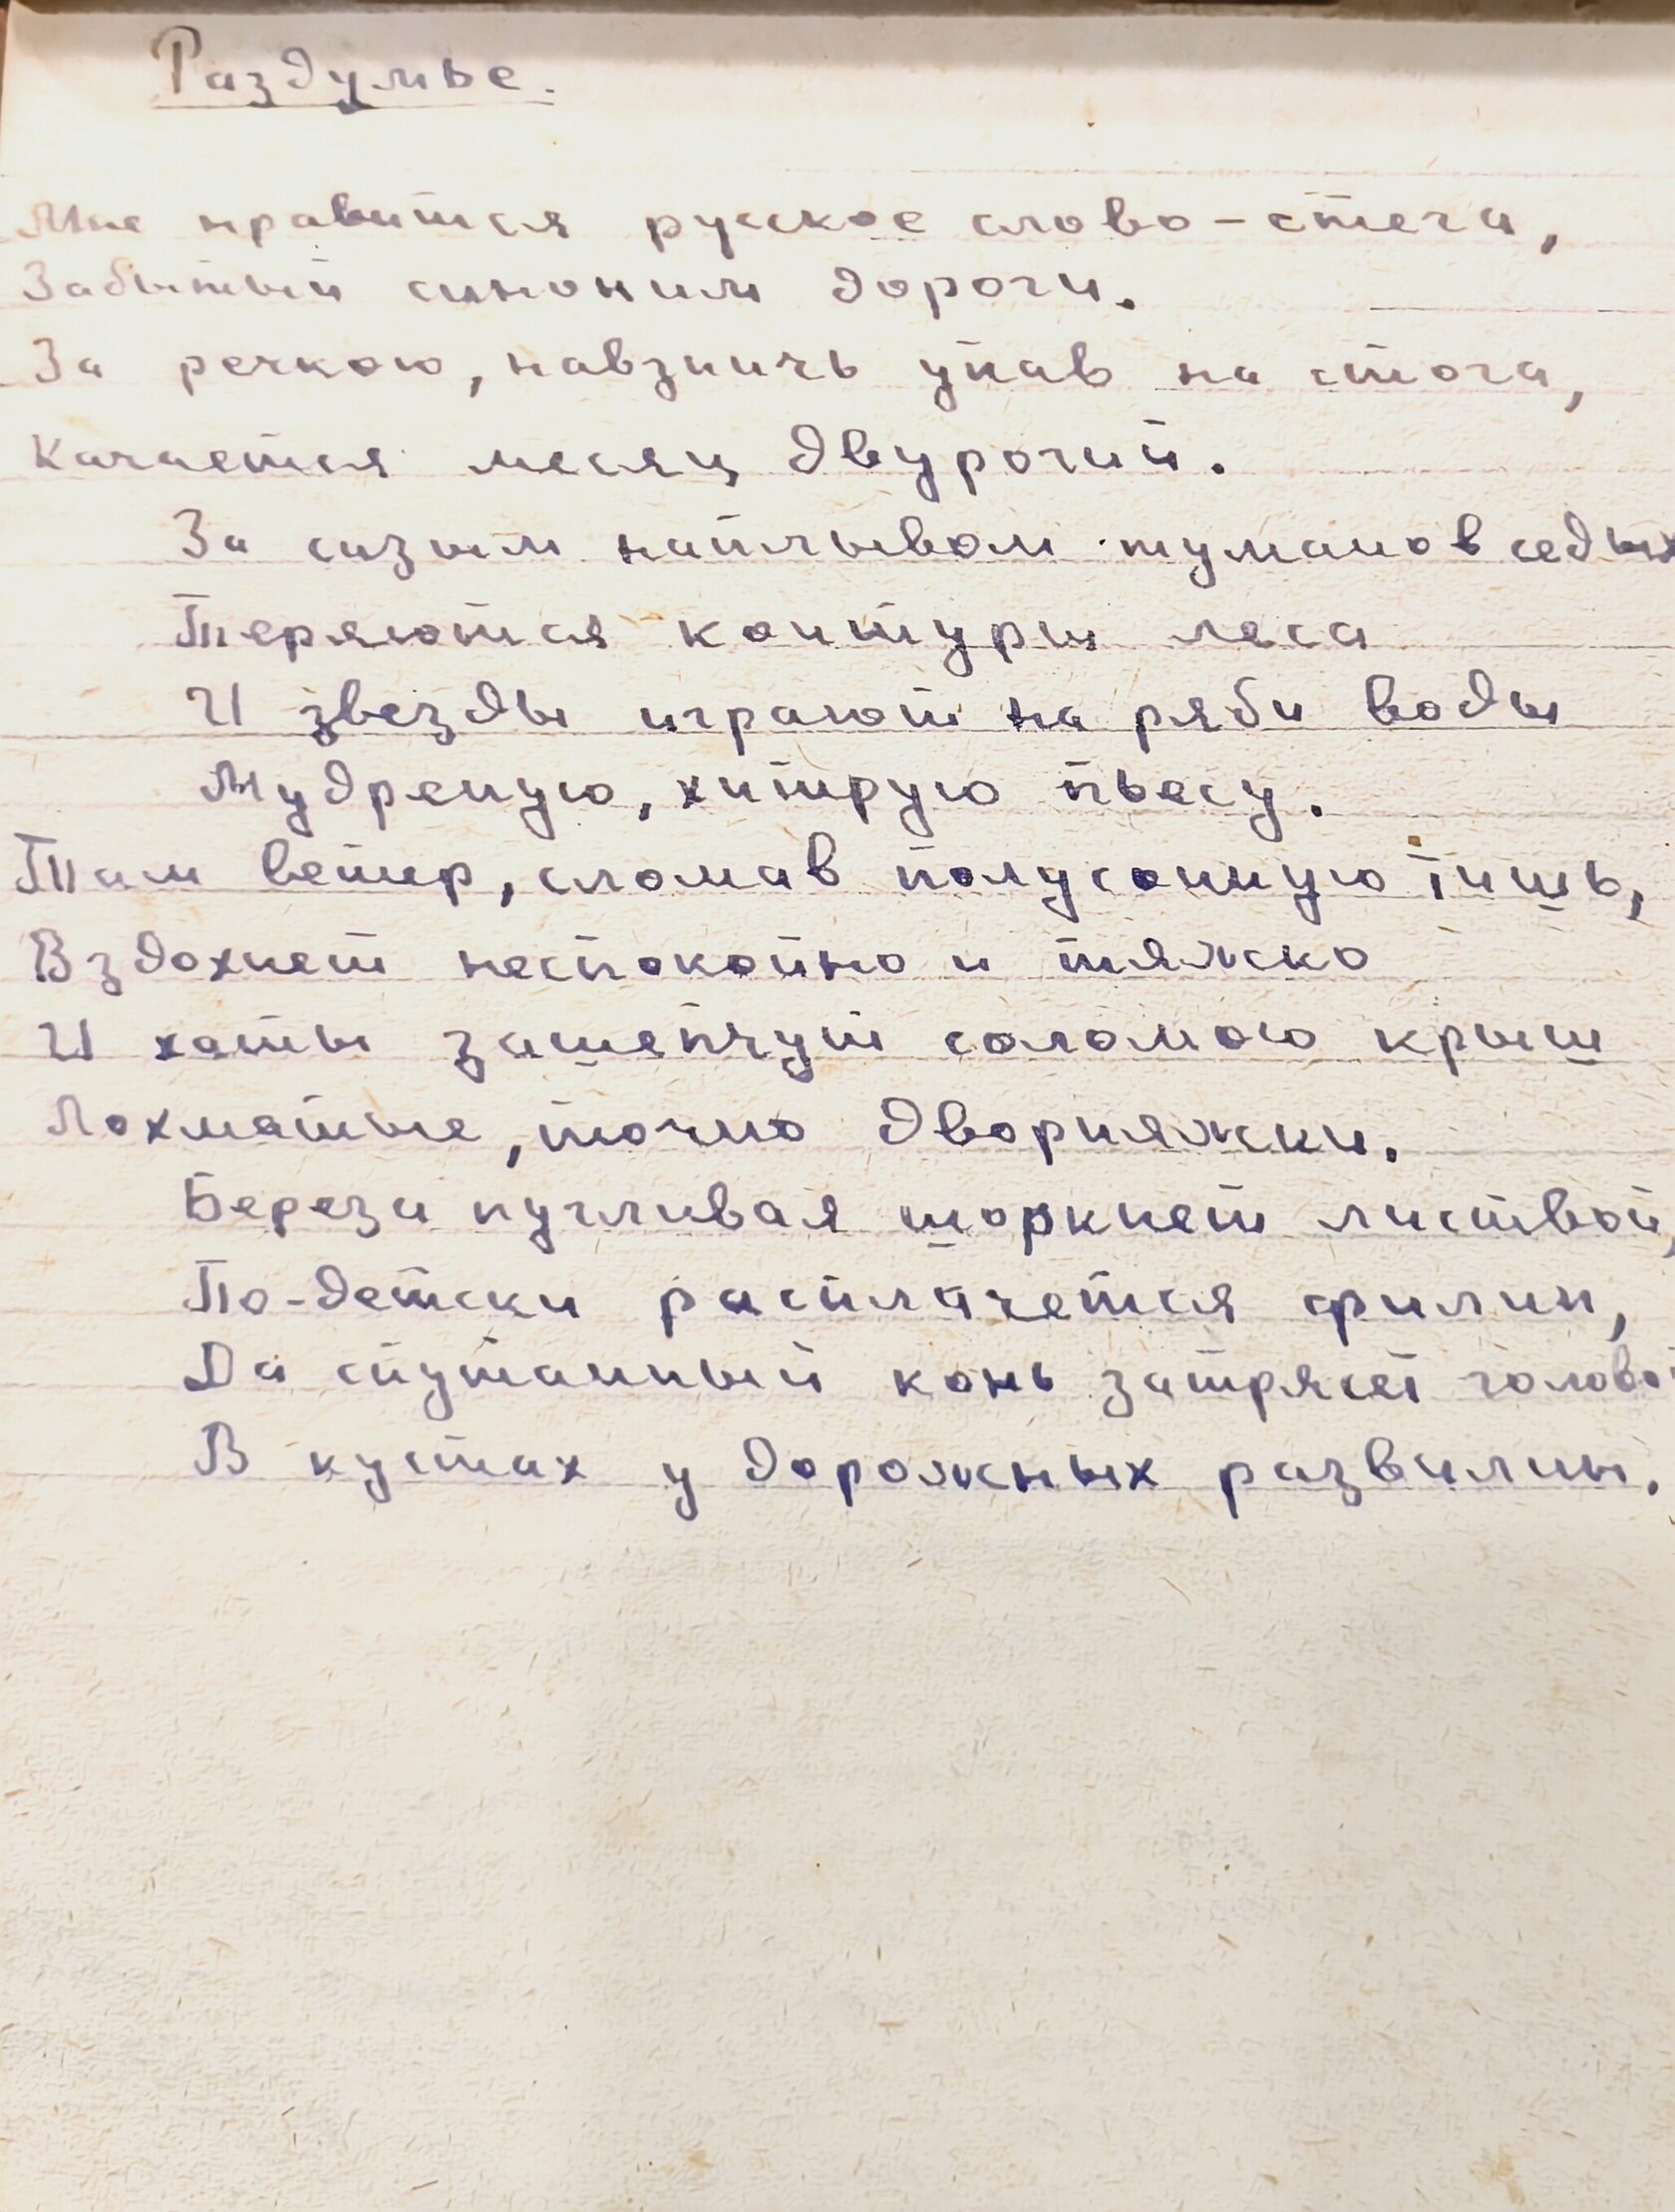 Раздумье.
Мне нравится русское слово - стега,
Забытый синоним дороги.
За речкою, навзничь упав на стога,
Качается месяц двурогий.
За сизым наплывом туманов седых
Теряются контуры леса
И звезды играют на ряби воды
Мудреную, хитрую пьесу.
Там ветер, сломав полусонную тишь,
Вздохнет неспокойно и тяжко
И хаты зашепчут соломою крыш
Лохматые, точно дворняжки.
Береза пугливая шоркнет листвой,
По-детски расплачется филин,
Да спутанный конь затрясет головой
В кустах у дорожных развилин.